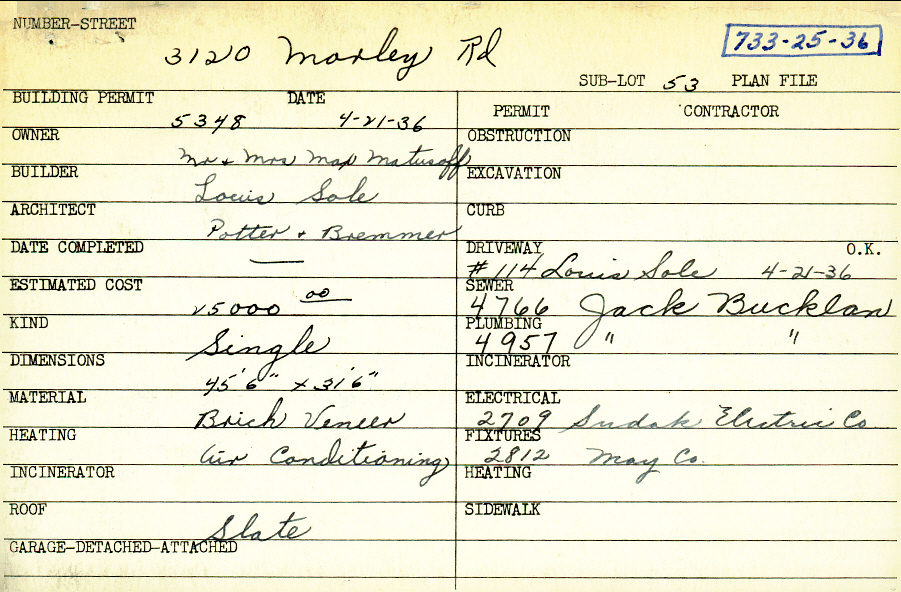 NUMBER-STREET
3120 Morley Rd
733-25-36
SUB-LOT 53 PLAN FILE
BUILDING PERMIT DATE
5348 4-21-36
OWNER
Mr + Mrs Max Matusoff
BUILDER
Louis Sole
ARCHITECT
Potter + Bremmer
DATE COMPLETED
—
ESTIMATED COST
25000 00
KIND
Single
DIMENSIONS
45'6" x 31'6"
MATERIAL
Brick Veneer
HEATING
Air Conditioning
INCINERATOR
ROOF
Slate
GARAGE-DETACHED-ATTACHED
PERMIT CONTRACTOR
OBSTRUCTION
EXCAVATION
CURB
DRIVEWAY O.K.
#114 Louis Sole 4-21-36
SEWER
4766 Jack Bucklan
PLUMBING
4957 " "
INCINERATOR
ELECTRICAL
2709 Sudak Electric Co
FIXTURES
2812 May Co.
HEATING
SIDEWALK